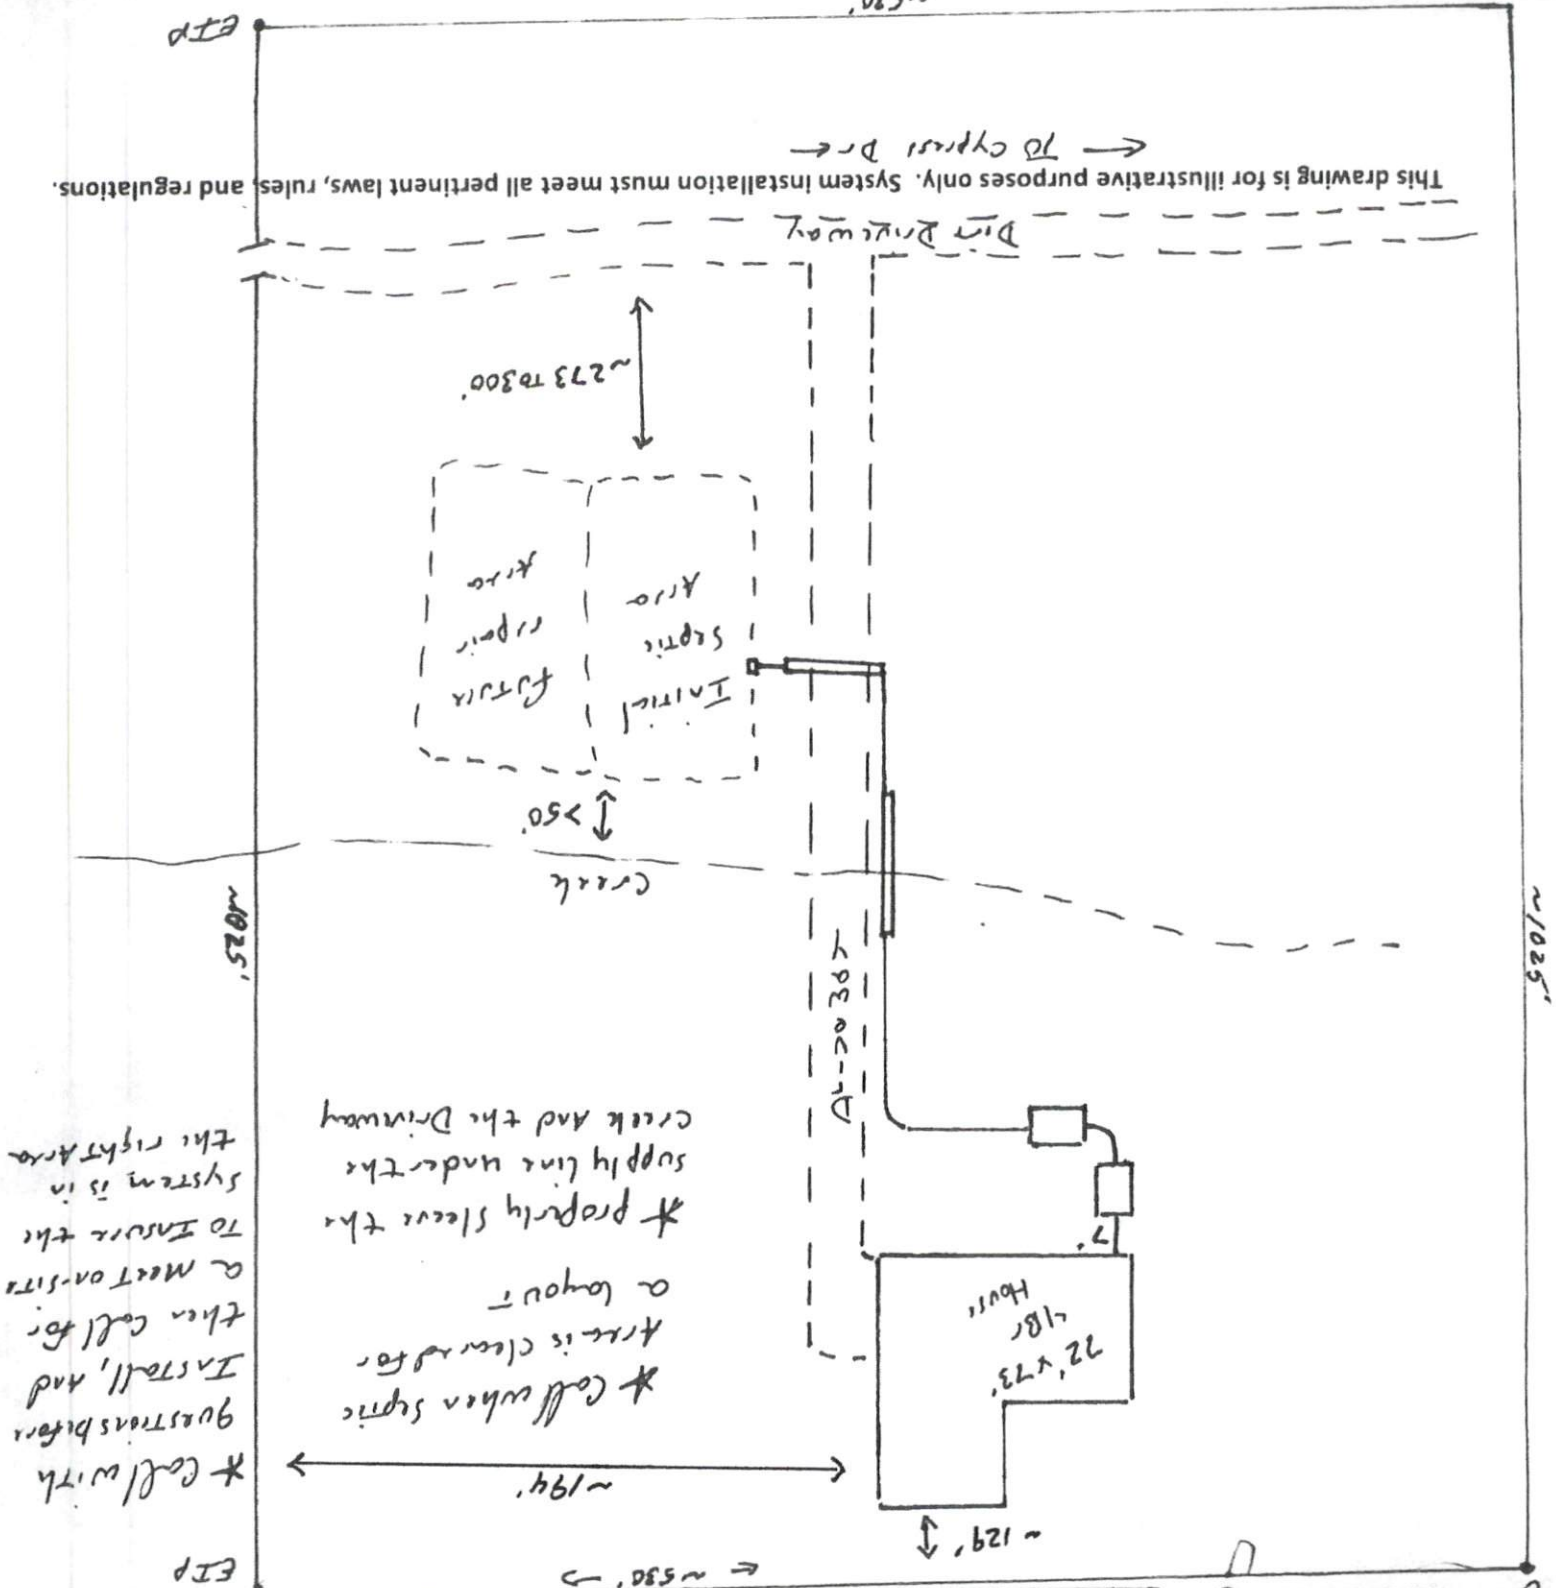 ← ~530' →
EIP
~129'
~194'
* Call with
questions before
Install, And
then Call for
a meet on-site
To Insure the
system is in
the right Area
* Call when septic
Area is cleared for
a layout
72' x 73'
4Br
House
7'
* properly sleeve the
supply line under the
creek And the Driveway
Driveway
~1025'
~1025'
Creek
>50'
Initial
septic
Area
future
repair
Area
~273 to 300'
Dirt Driveway
This drawing is for illustrative purposes only. System installation must meet all pertinent laws, rules, and regulations.
→ To Cypress Dr →
EIP